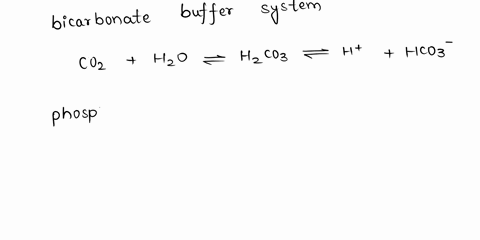 bicarbonate buffer system
CO₂ + H₂O ⇌ H₂CO₃ ⇌ H⁺ + HCO₃⁻
phosp